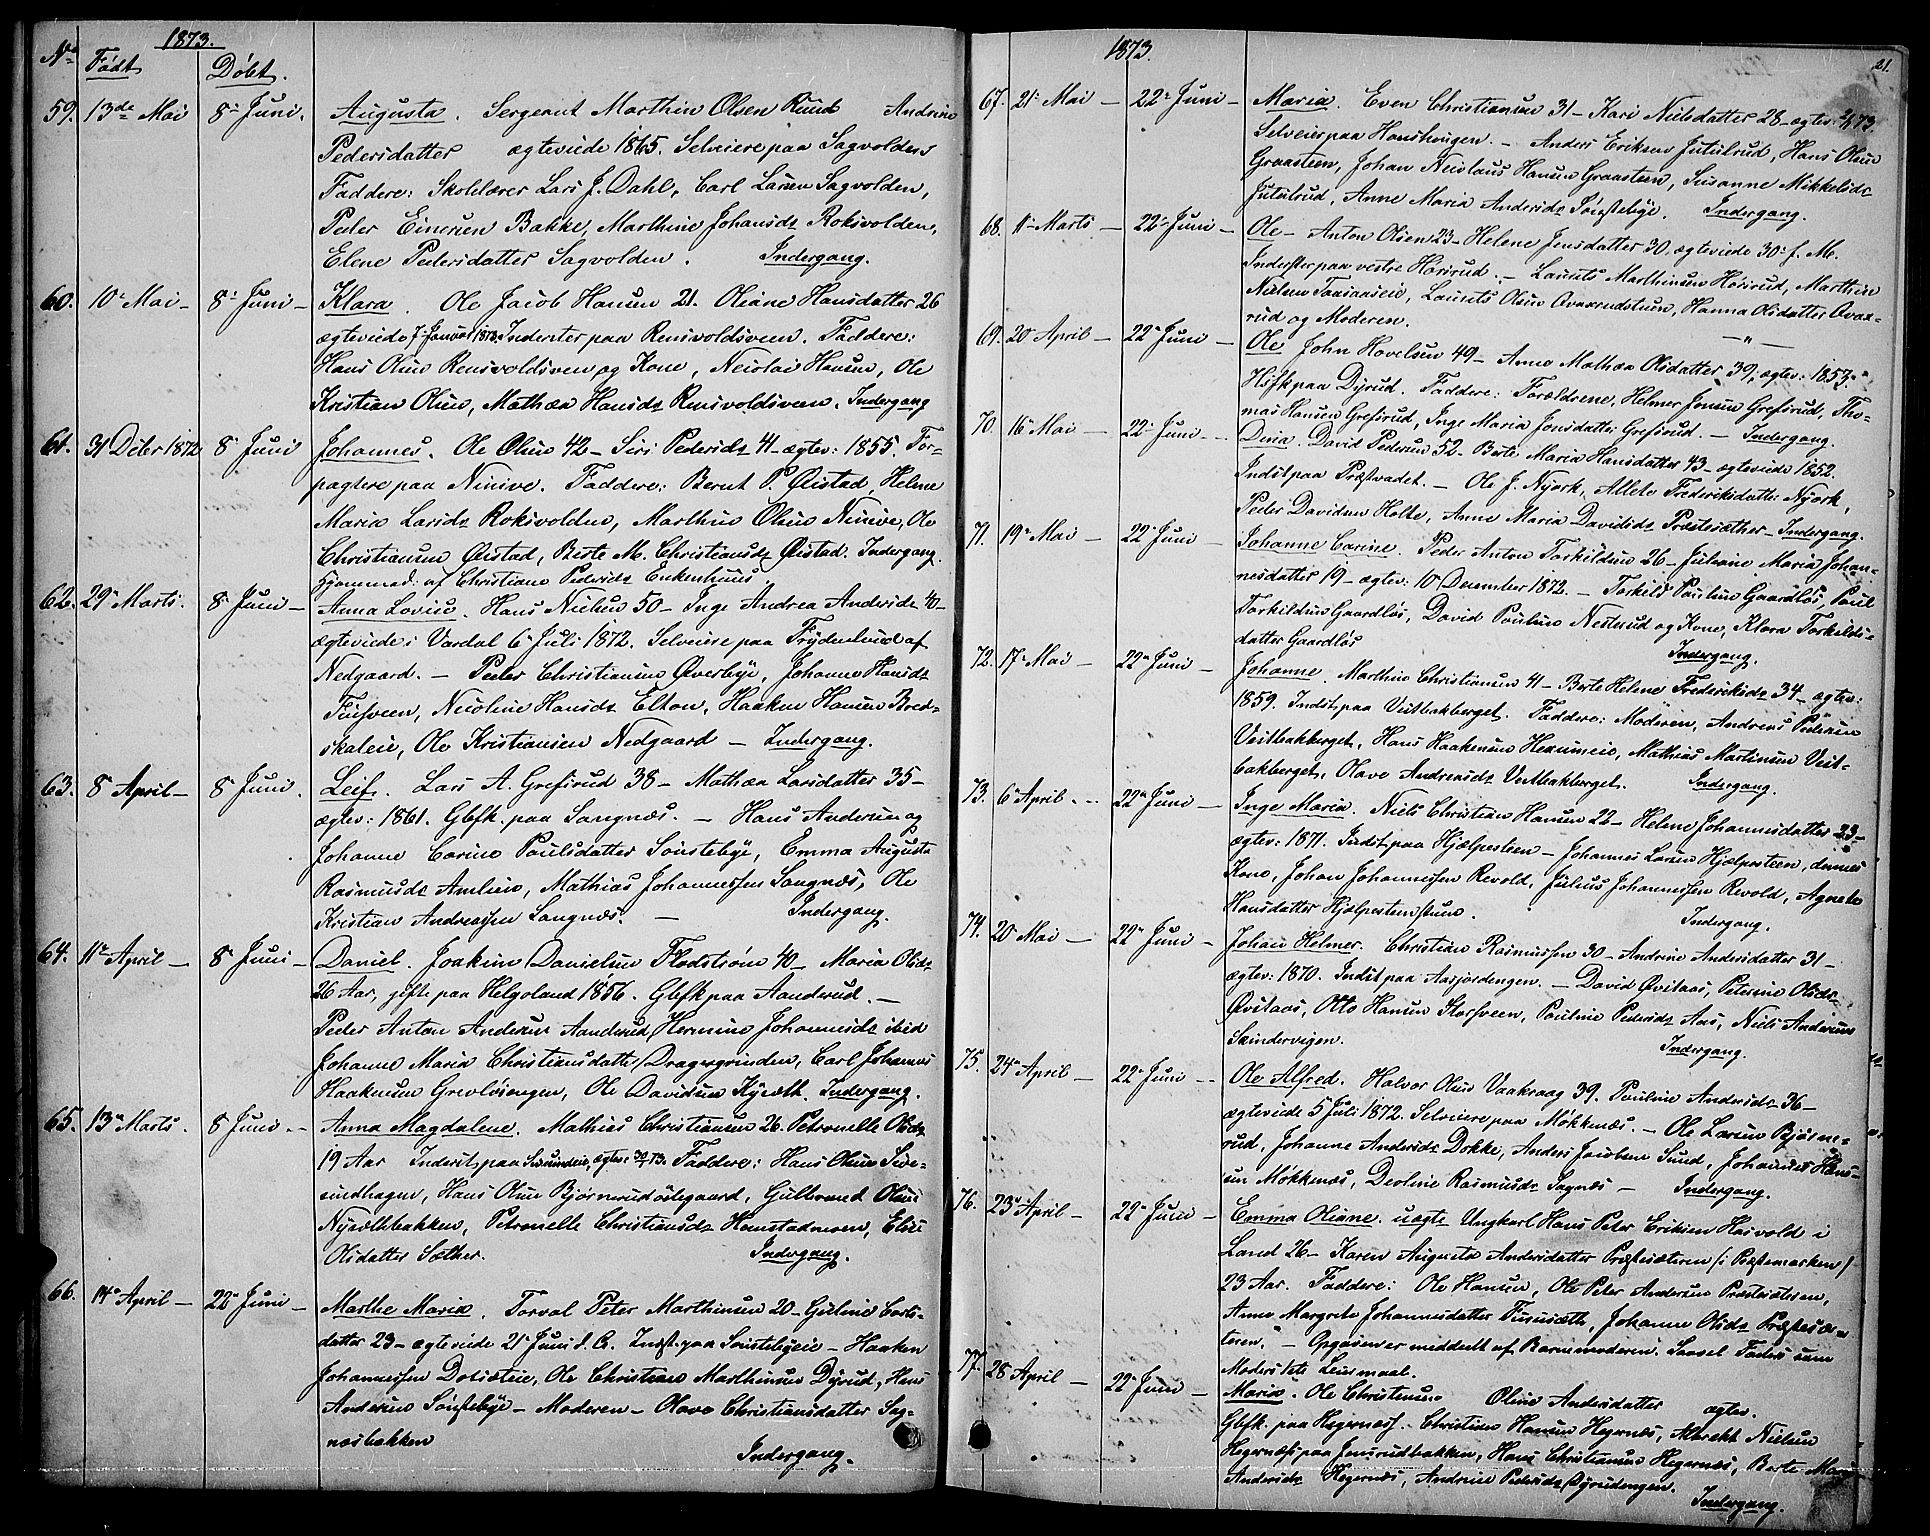 1873.
No Født Døbt.
59. 13de Mai 8de Juni. Augusta. Sergeant Marthin Olsen Ruud Andrine
Pedersdatter ægteviede 1865. Selveiere paa Sagvolden
Faddere: Skolelærer Lars J. Dahl, Carl Larsen Sagvolden,
Peder Einersen Bakke, Marthine Johansdt Roksvolden,
Elene Pedersdatter Sagvolden. Indergang.
60. 10de Mai - 8de Juni - Klara. Ole Jacob Hansen 21. Oliane Hansdatter 26
ægteviede 7. Januar 1873. Inderster paa Rensvoldsveen. Faddere:
Hans Olsen Rensvoldsveen og Kone, Nicolai Hansen, Ole
Kristian Olsen, Mathea Hansdt Rensvoldsveen. Indergang
61. 31 Dcbr 1872 8de Juni Johannes. Ole Olsen 42 - Siri Pedersdt 41 - ægtev: 1855. For-
pagtere paa Ninive. Faddere: Bernt P. Øistad, Helene
Maria Larsdt Roksvolden, Marthin Olsen Ninive, Ole
Christiansen Øistad, Berte M. Christiansdt Øistad. Indergang.
Hjemmed: af Christiane Pedersdt Enkenhuus.
62. 29de Marts. 8de Juni - Anna Lovise. Hans Nielsen 50 - Inge Andrea Andersdt 40 -
ægteviede i Vardal 6te Juli 1872. Selveiere paa Frydenlund af
Nedgaard. - Peder Christiansen Øverbye, Johanne Hansdt
Fuisveen, Nicoline Hansdt Elton, Haaken Hansen Bred-
skaleie, Ole Kristiansen Nedgaard - Indergang.
63. 8de April - 8de Juni. Leif. Lars A. Grefsrud 38 - Mathea Larsdatter 35 -
ægtev: 1861. Gbfk. paa Sangnæs. - Hans Andersen og
Johanne Carine Paulsdatter Sønstebye, Emma Augusta
Rasmusdt Amlien, Mathias Johannessen Sangnæs, Ole
Kristian Andreassen Sangnæs. - Indergang.
64. 11te April - 8de Juni - Daniel. Joakim Danielsen Flodstrøm 40 - Maria Olsdt
26 Aar, gifte paa Helgoland 1856. Gbfk paa Aanderud. -
Peder Anton Andersen Aanderud, Hermine Johannesdt ibid
Johanne Maria Christiansdatter Dragergrinden, Carl Johannes
Haakensen Grevløsengen, Ole Davidsen Kysæth. Indergang.
65. 13de Marts. 8de Juni - Anna Magdalene. Mathias Christiansen 26. Petronelle Olsdt
19 Aar Inderst paa Sivesindeie, ægtev: Faddere: Hans Olsen Sive-
sindhagen, Hans Olsen Bjørnerudødegaard, Gulbrand Olsen
Nysætbakken, Petronelle Christiansdt Haustadmoen, Elise
Olsdatter Sæther. Indergang.
66. 14de April - 22de Juni - Marthe Maria. Torval Peter Marthinsen 20 - Guline Carls-
datter 23 - ægteviede 21de Juni d. A. Indst. paa Sønstebyeie - Haaken
Johannessen Dotsæteie, Ole Christian Marthinsen Dyrud, Hans
Andersen Sønstebye - Moderen - Olave Christiansdatter Sag-
næsbakken Indergang.
1873.
21.
67. 21de Mai - 22de Juni - Maria. Even Christiansen 31 - Kari Nielsdatter 28 - ægtev: 73.
Selveier paa Haugshougen. - Anders Eriksen Jutulrud, Hans Olsen
Graasteen, Johan Nicolaus Hansen Graasteen, Susanne Mikkelsdt
Jutulrud, Anne Maria Andersdt Sønstebye. Indergang.
68. 11te Marts - 22de Juni - Ole - Anton Olsen 23 - Helene Jensdatter 30 ægteviede 30te f. M.
Inderster paa vestre Horsrud. - Laurits Marthinsen Horsrud, Marthin
Nielsen, Laurits Olsen Qvaarudstuen, Hanna Olsdatter Qvaa-
rud og Moderen. - " -
69. 20de April - 22de Juni - Ole John Hovelsen 49 - Anne Mathea Olsdatter 39, ægtev: 1853.
Hsfk paa Dyrud. Faddere: Forældrene, Helmer Jensen Grefsrud, Tho-
mas Hansen Grefsrud, Inge Maria Jonsdatter Grefsrud. - Indergang.
70. 16de Mai - 22de Juni - Dina. David Pedersen 52 - Berte Maria Hansdatter 43 - ægteviede 1852.
Indst paa Præstvadet. - Ole J. Nyork, Allete Frederiksdatter Nyork,
Peder Davidsen Holte, Anne Maria Davidsdt Præstsæther - Indergang.
71. 19de Mai - 22de Juni - Johanne Carine. Peder Anton Torkildsen 26 - Juliane Maria Johan-
nesdatter 19 - ægtev: 10de December 1872. - Torkild Paulsen Gaardløs, Paul
Torkildsen Gaardløs, David Poulsen Nesterud og Kone, Klara Torkilds-
datter Gaardløs Indergang.
72. 17de Mai - 22de Juni - Johanne. Marthin Christiansen 41 - Berte Helene Frederiksdt 34 - ægtev:
1859. Indst paa Veitbakberget. Faddere: Moderen, Andreas Pedersen
Veitbakberget, Hans Haakensen Hexumeie, Mathias Martinsen Veit-
bakberget, Olave Andreasdt Veitbakberget. Indergang.
73. 6te April - 22de Juni - Inge Maria. Niels Christian Hansen 22 - Helene Johannesdatter 23 -
ægtev: 1871. Indst paa Hjælpesteen - Johannes Larsen Hjælpesteen, dennes
Kone, Johan Johannessen Revold, Julius Johannessen Revold, Agnete
Hansdatter Hjælpesteenstuen. Indergang.
74. 20de Mai - 22de Juni - Johan Helmer. Christian Rasmussen 30 - Andrine Andersdatter 31 -
ægtev: 1870. Indst paa Aasjordengen. - David Qvitaas, Petrine Olsdt
Qvitaas, Otto Hansen Storsveen, Pauline Pedersdt Aas, Niels Andersen
Skindervigen. Indergang.
75. 24de April - 22de Juni - Ole Alfred. Halvor Olsen Vaakraag 39. Pauline Andersdt 36 -
ægteviede 5 Juli 1872. Selveiere paa Møkkenæs. - Ole Larsen Bjørne-
rud, Johanne Andersdt Dokke, Anders Jacobsen Sund, Johannes Hans-
sen Møkkenæs, Deoline Rasmusdt Sagnæs - Indergang.
76. 23de April - 22de Juni - Emma Oliane. uægte Ungkarl Hans Peter Eriksen Hasvold i
Land 26 - Karen Augusta Andersdatter Præstesæteren (i Præstemarken)
23 Aar. Faddere: Ole Hansen, Ole Peter Andersen Præstesæteren,
Anne Margrete Johannesdatter Fususæth, Johanne Olsdt Præstesæ-
teren. - Opgaven er meddelt af Barnemoderen. Saavel Faders som
Moders 1ste Leiermaal.
77. 28 April - 22de Juni - Maria. Ole Christensen Oline Andersdatter ægtev.
Gbfk. paa Hegernæs. Christian Hansen Hegernæs, Marekt Nielsen
Hegernæs paa Jensrudbakken, Hans Christiansen Hegernæs, Berte Maria
Andersdt Hegernæs, Andrine Pedersdt Dyrudengen.
Indergang.